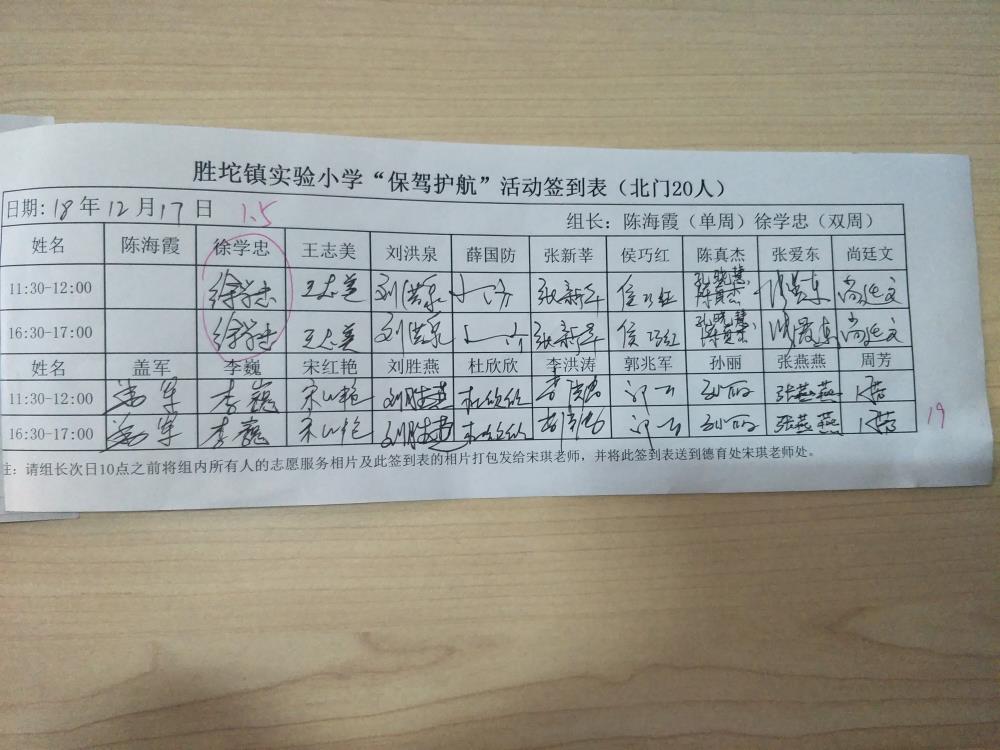 胜坨镇实验小学“保驾护航”活动签到表（北门20人）
日期: 18 年 12 月 17 日 1.5
组长：陈海霞（单周）徐学忠（双周）
姓名 陈海霞 徐学忠 王志美 刘洪泉 薛国防 张新莘 侯巧红 陈真杰 张爱东 尚廷文
11:30-12:00 徐学忠 王志美 刘洪泉 张新莘 侯巧红 孔晓慧 陈真杰 张爱东 尚廷文
16:30-17:00 徐学忠 王志美 刘洪泉 张新莘 侯巧红 孔晓慧 陈真杰 张爱东 尚廷文
姓名 盖军 李巍 宋红艳 刘胜燕 杜欣欣 李洪涛 郭兆军 孙丽 张燕燕 周芳
11:30-12:00 盖军 李巍 宋红艳 刘胜燕 杜欣欣 李洪涛 孙丽 张燕燕 周芳
16:30-17:00 盖军 李巍 宋红艳 刘胜燕 杜欣欣 李洪涛 孙丽 张燕燕 周芳 19
注：请组长次日10点之前将组内所有人的志愿服务相片及此签到表的相片打包发给宋琪老师，并将此签到表送到德育处宋琪老师处。